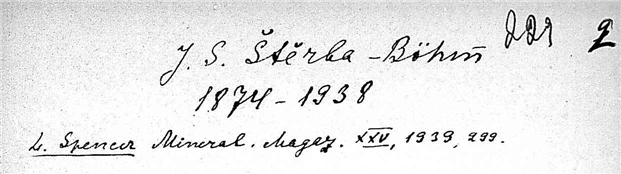 221 2
J. S. Štěrba-Böhm
1874-1938
L. Spencer Mineral. Magaz. XXV, 1939, 299.